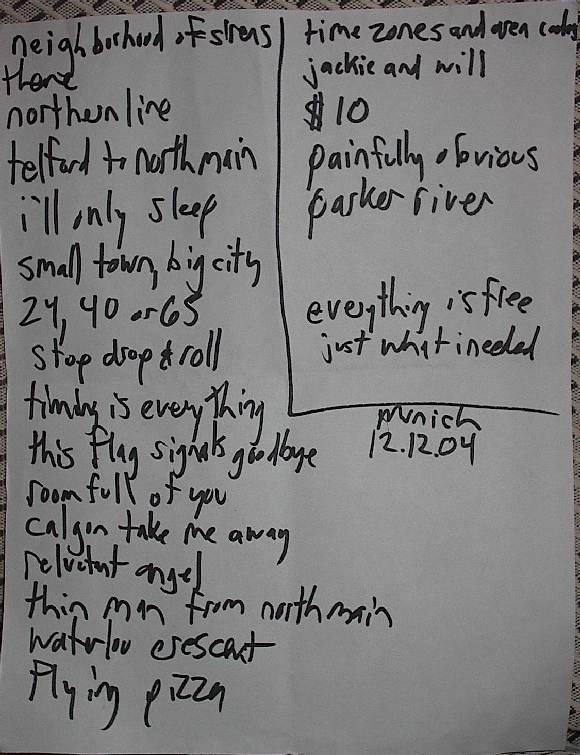 neighborhood of sirens
there
northern line
telford to north main
i'll only sleep
small town, big city
24, 40 or 65
stop drop & roll
timing is everything
this flag signals goodbye
room full of you
calgon take me away
reluctant angel
thin man from north main
waterloo crescent
flying pizza
time zones and area codes
jackie and will
$10
painfully obvious
parker river
everything is free
just what i needed
munich
12.12.04